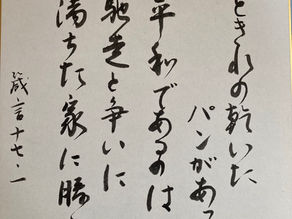 ときれの乾いた
パンがあ
平和であるのは
馳走と争いに
満ちた家に勝
箴言十七・一